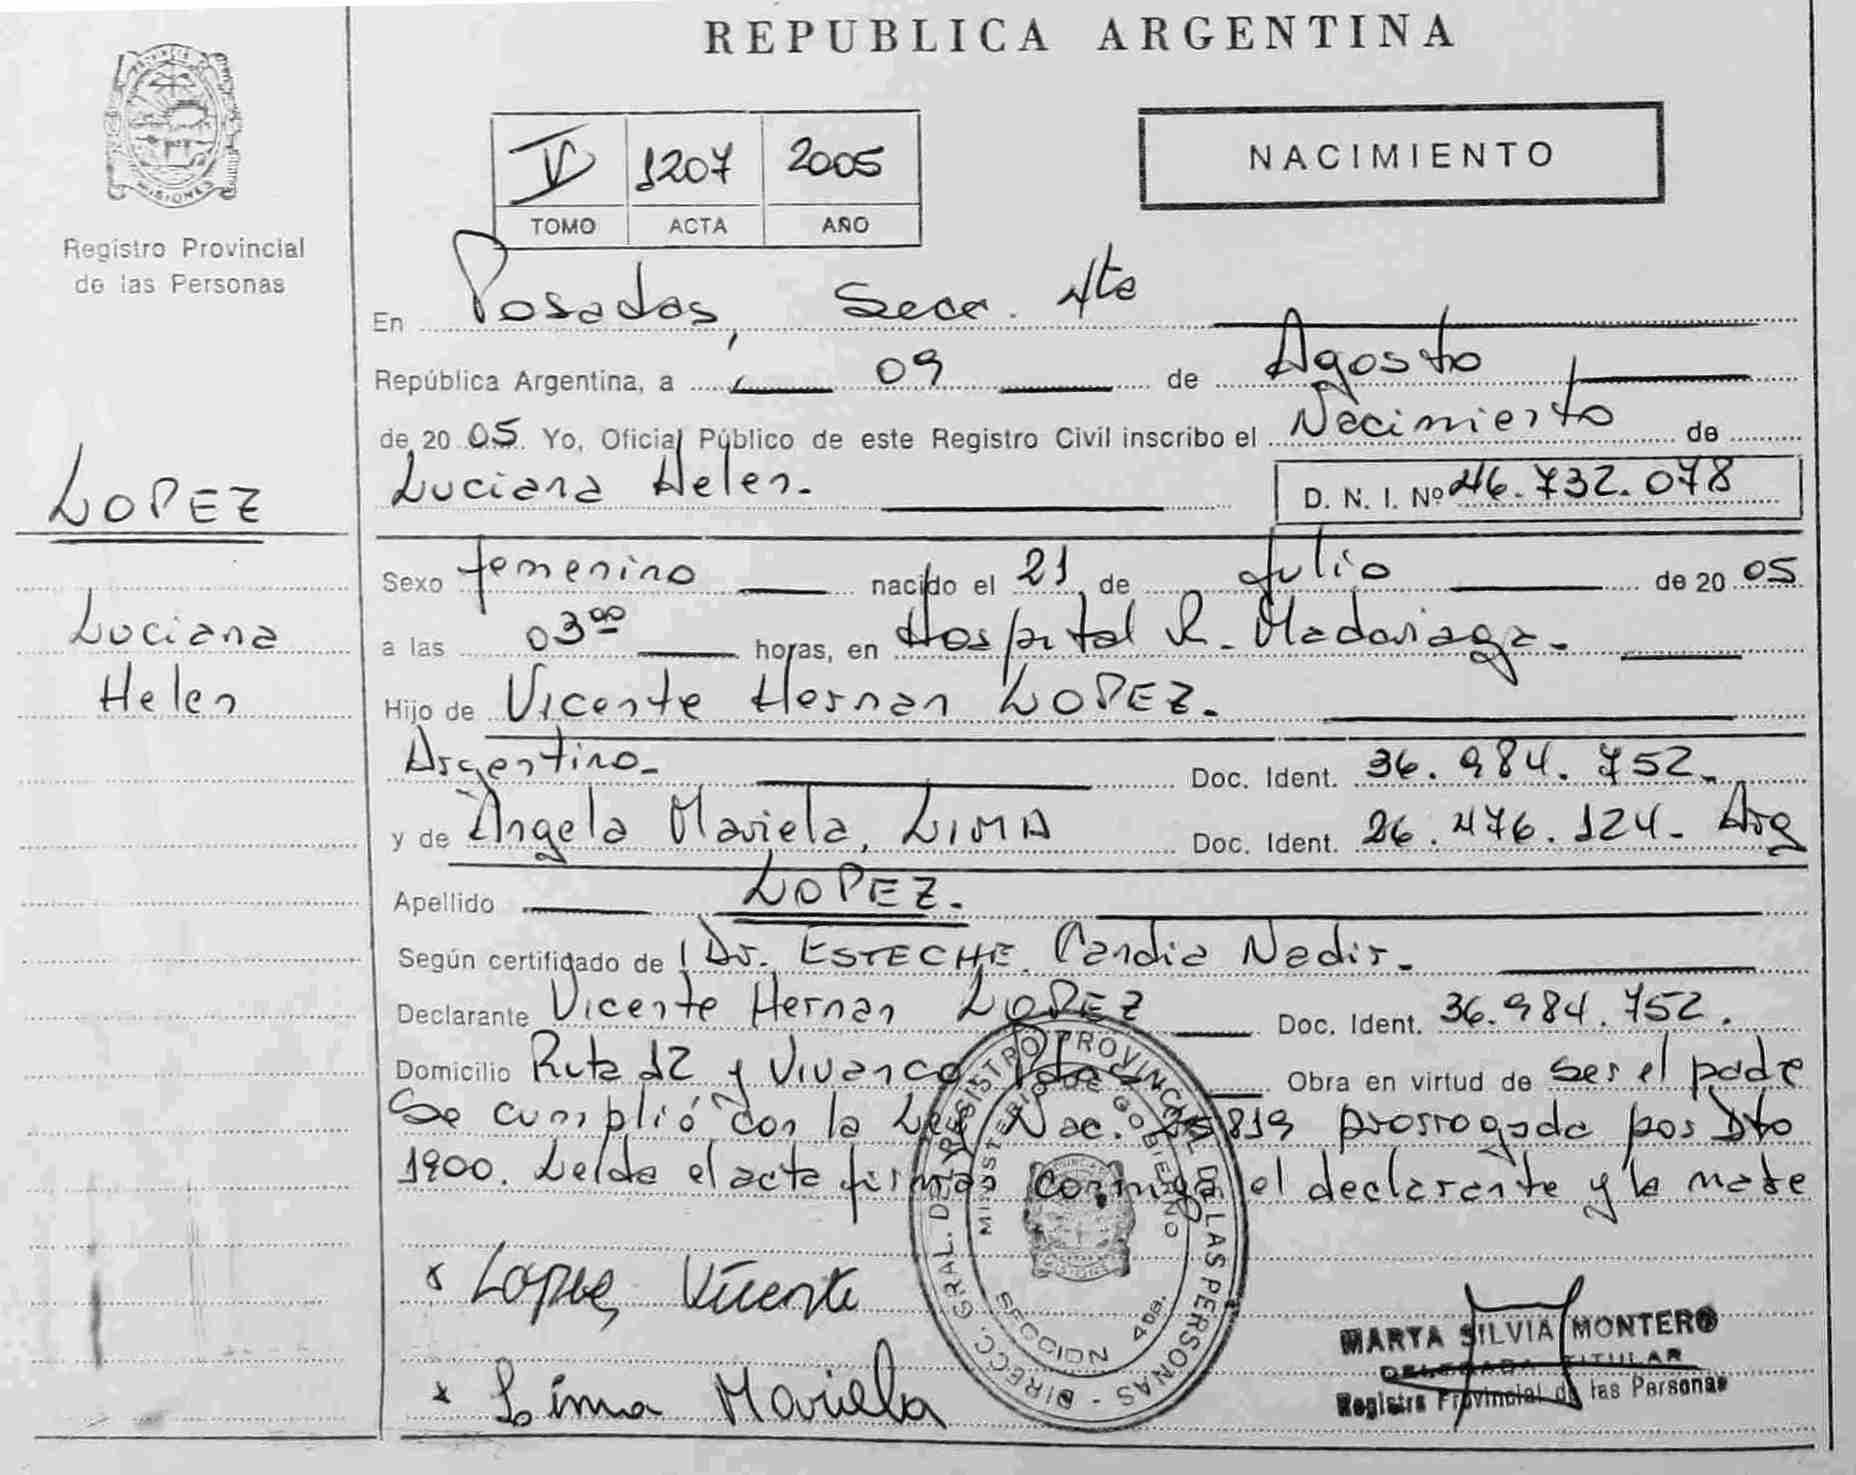 REPUBLICA ARGENTINA
PROVINCIA DE
MISIONES
Registro Provincial
de las Personas
NACIMIENTO
V 1207 2005
TOMO ACTA AÑO
En Posadas, Secc. 4ta
República Argentina, a 09 de Agosto
de 20 05. Yo, Oficial Público de este Registro Civil inscribo el Nacimiento de
Luciana Helen.
D. N. I. Nº 46.732.078
LOPEZ
Luciana
Helen
Sexo femenino nacido el 21 de Julio de 20 05
a las 03 00 horas, en Hospital R. Madariaga.
Hijo de Vicente Hernan LOPEZ.
Argentino. Doc. Ident. 36.984.752.
y de Angela Mariela, LIMA Doc. Ident. 26.476.124. Arg
Apellido LOPEZ.
Según certificado de Dr. ESTECHE Candia Nadir.
Declarante Vicente Hernan LOPEZ Doc. Ident. 36.984.752.
Domicilio Ruta 12 y Vivanco Pdas Obra en virtud de ser el padre
Se cumplió con la Ley Nac. 25819 prorrogada por Dto
1900. Leida el acta firman conmigo el declarante y la madre
x Lopez, Vicente
x Lima Mariela
DIRECC. GRAL. DEL REGISTRO PROVINCIAL DE LAS PERSONAS -
MINISTERIO DE GOBIERNO
SECCION 4ta.
MARTA SILVIA MONTERO
DELEGADA TITULAR
Registro Provincial de las Personas